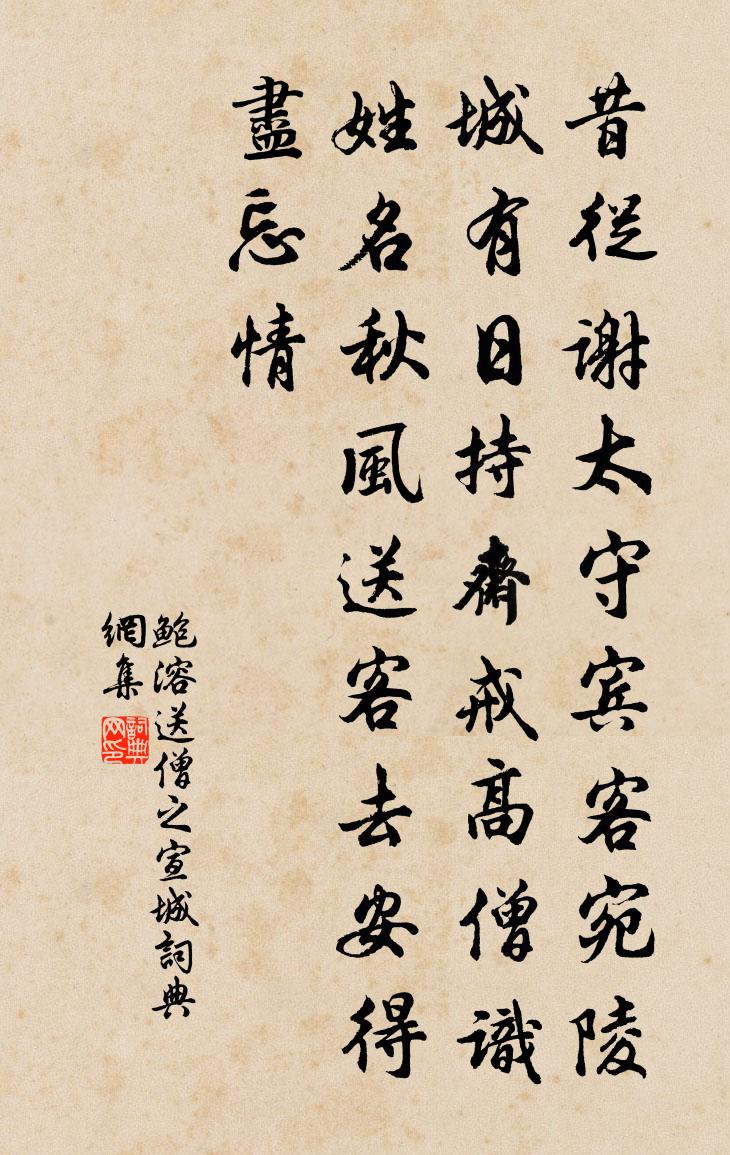 昔從謝太守宾客宛陵
城有日持齋戒高僧識
姓名秋風送客去安得
盡忘情
鮑溶送僧之宣城詞典
網集
詞典網印